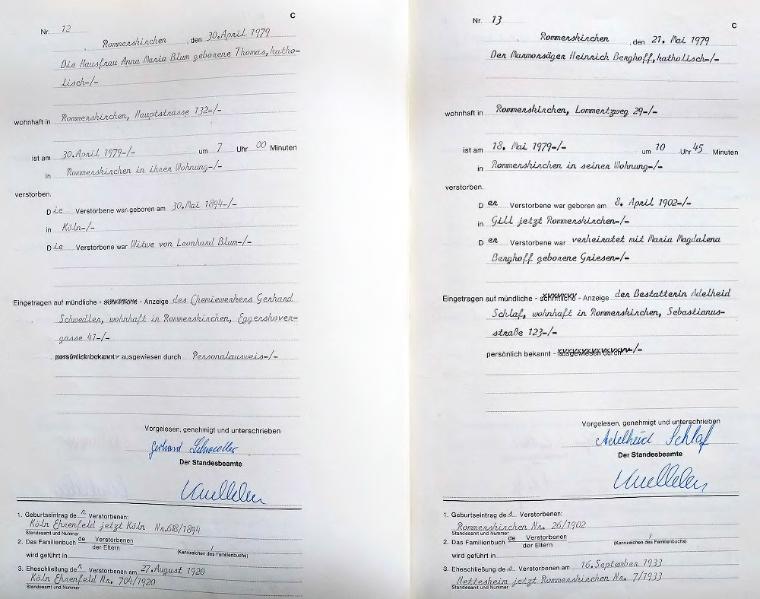 C
Nr. 12
Rommerskirchen, den 30. April 1979
Die Hausfrau Anna Maria Blum geborene Thomas, katho-
lisch-/-
wohnhaft in Rommerskirchen, Hauptstrasse 132-/-
ist am 30. April 1979-/- um 7 Uhr 00 Minuten
in Rommerskirchen in ihrer Wohnung-/-
verstorben.
Die Verstorbene war geboren am 30. Mai 1894-/-
in Köln-/-
Die Verstorbene war Witwe von Leonhard Blum-/-
Eingetragen auf mündliche - schriftliche - Anzeige des Chemiewerkers Gerhard
Schwedler, wohnhaft in Rommerskirchen, Eggershover-
gasse 47-/-
persönlich bekannt - ausgewiesen durch Personalausweis-/-
Vorgelesen, genehmigt und unterschrieben
Gerhard Schwedler
Der Standesbeamte
1. Geburtseintrag der Verstorbenen:
Köln Ehrenfeld jetzt Köln Nr. 618/1894
Standesamt und Nummer
2. Das Familienbuch der Verstorbenen
der Eltern
(Kennzeichen des Familienbuchs)
wird geführt in
3. Eheschließung der Verstorbenen am 27. August 1920
Köln Ehrenfeld Nr. 704/1920
Standesamt und Nummer
C
Nr. 13
Rommerskirchen, den 21. Mai 1979
Der Marmorsäger Heinrich Berghoff, katholisch-/-
wohnhaft in Rommerskirchen, Lommertzweg 29-/-
ist am 18. Mai 1979-/- um 10 Uhr 45 Minuten
in Rommerskirchen in seiner Wohnung-/-
verstorben.
Der Verstorbene war geboren am 8. April 1902-/-
in Gill jetzt Rommerskirchen-/-
Der Verstorbene war verheiratet mit Maria Magdalena
Berghoff geborene Griesen-/-
Eingetragen auf mündliche - schriftliche - Anzeige der Bestatterin Adelheid
Schlaf, wohnhaft in Rommerskirchen, Sebastianus-
straße 123-/-
persönlich bekannt - ausgewiesen durch-/-
Vorgelesen, genehmigt und unterschrieben
Adelheid Schlaf
Der Standesbeamte
1. Geburtseintrag des Verstorbenen:
Rommerskirchen Nr. 26/1902
Standesamt und Nummer
2. Das Familienbuch der Verstorbenen
der Eltern
(Kennzeichen des Familienbuchs)
wird geführt in
3. Eheschließung des Verstorbenen am 16. September 1933
Nettesheim jetzt Rommerskirchen Nr. 7/1933
Standesamt und Nummer